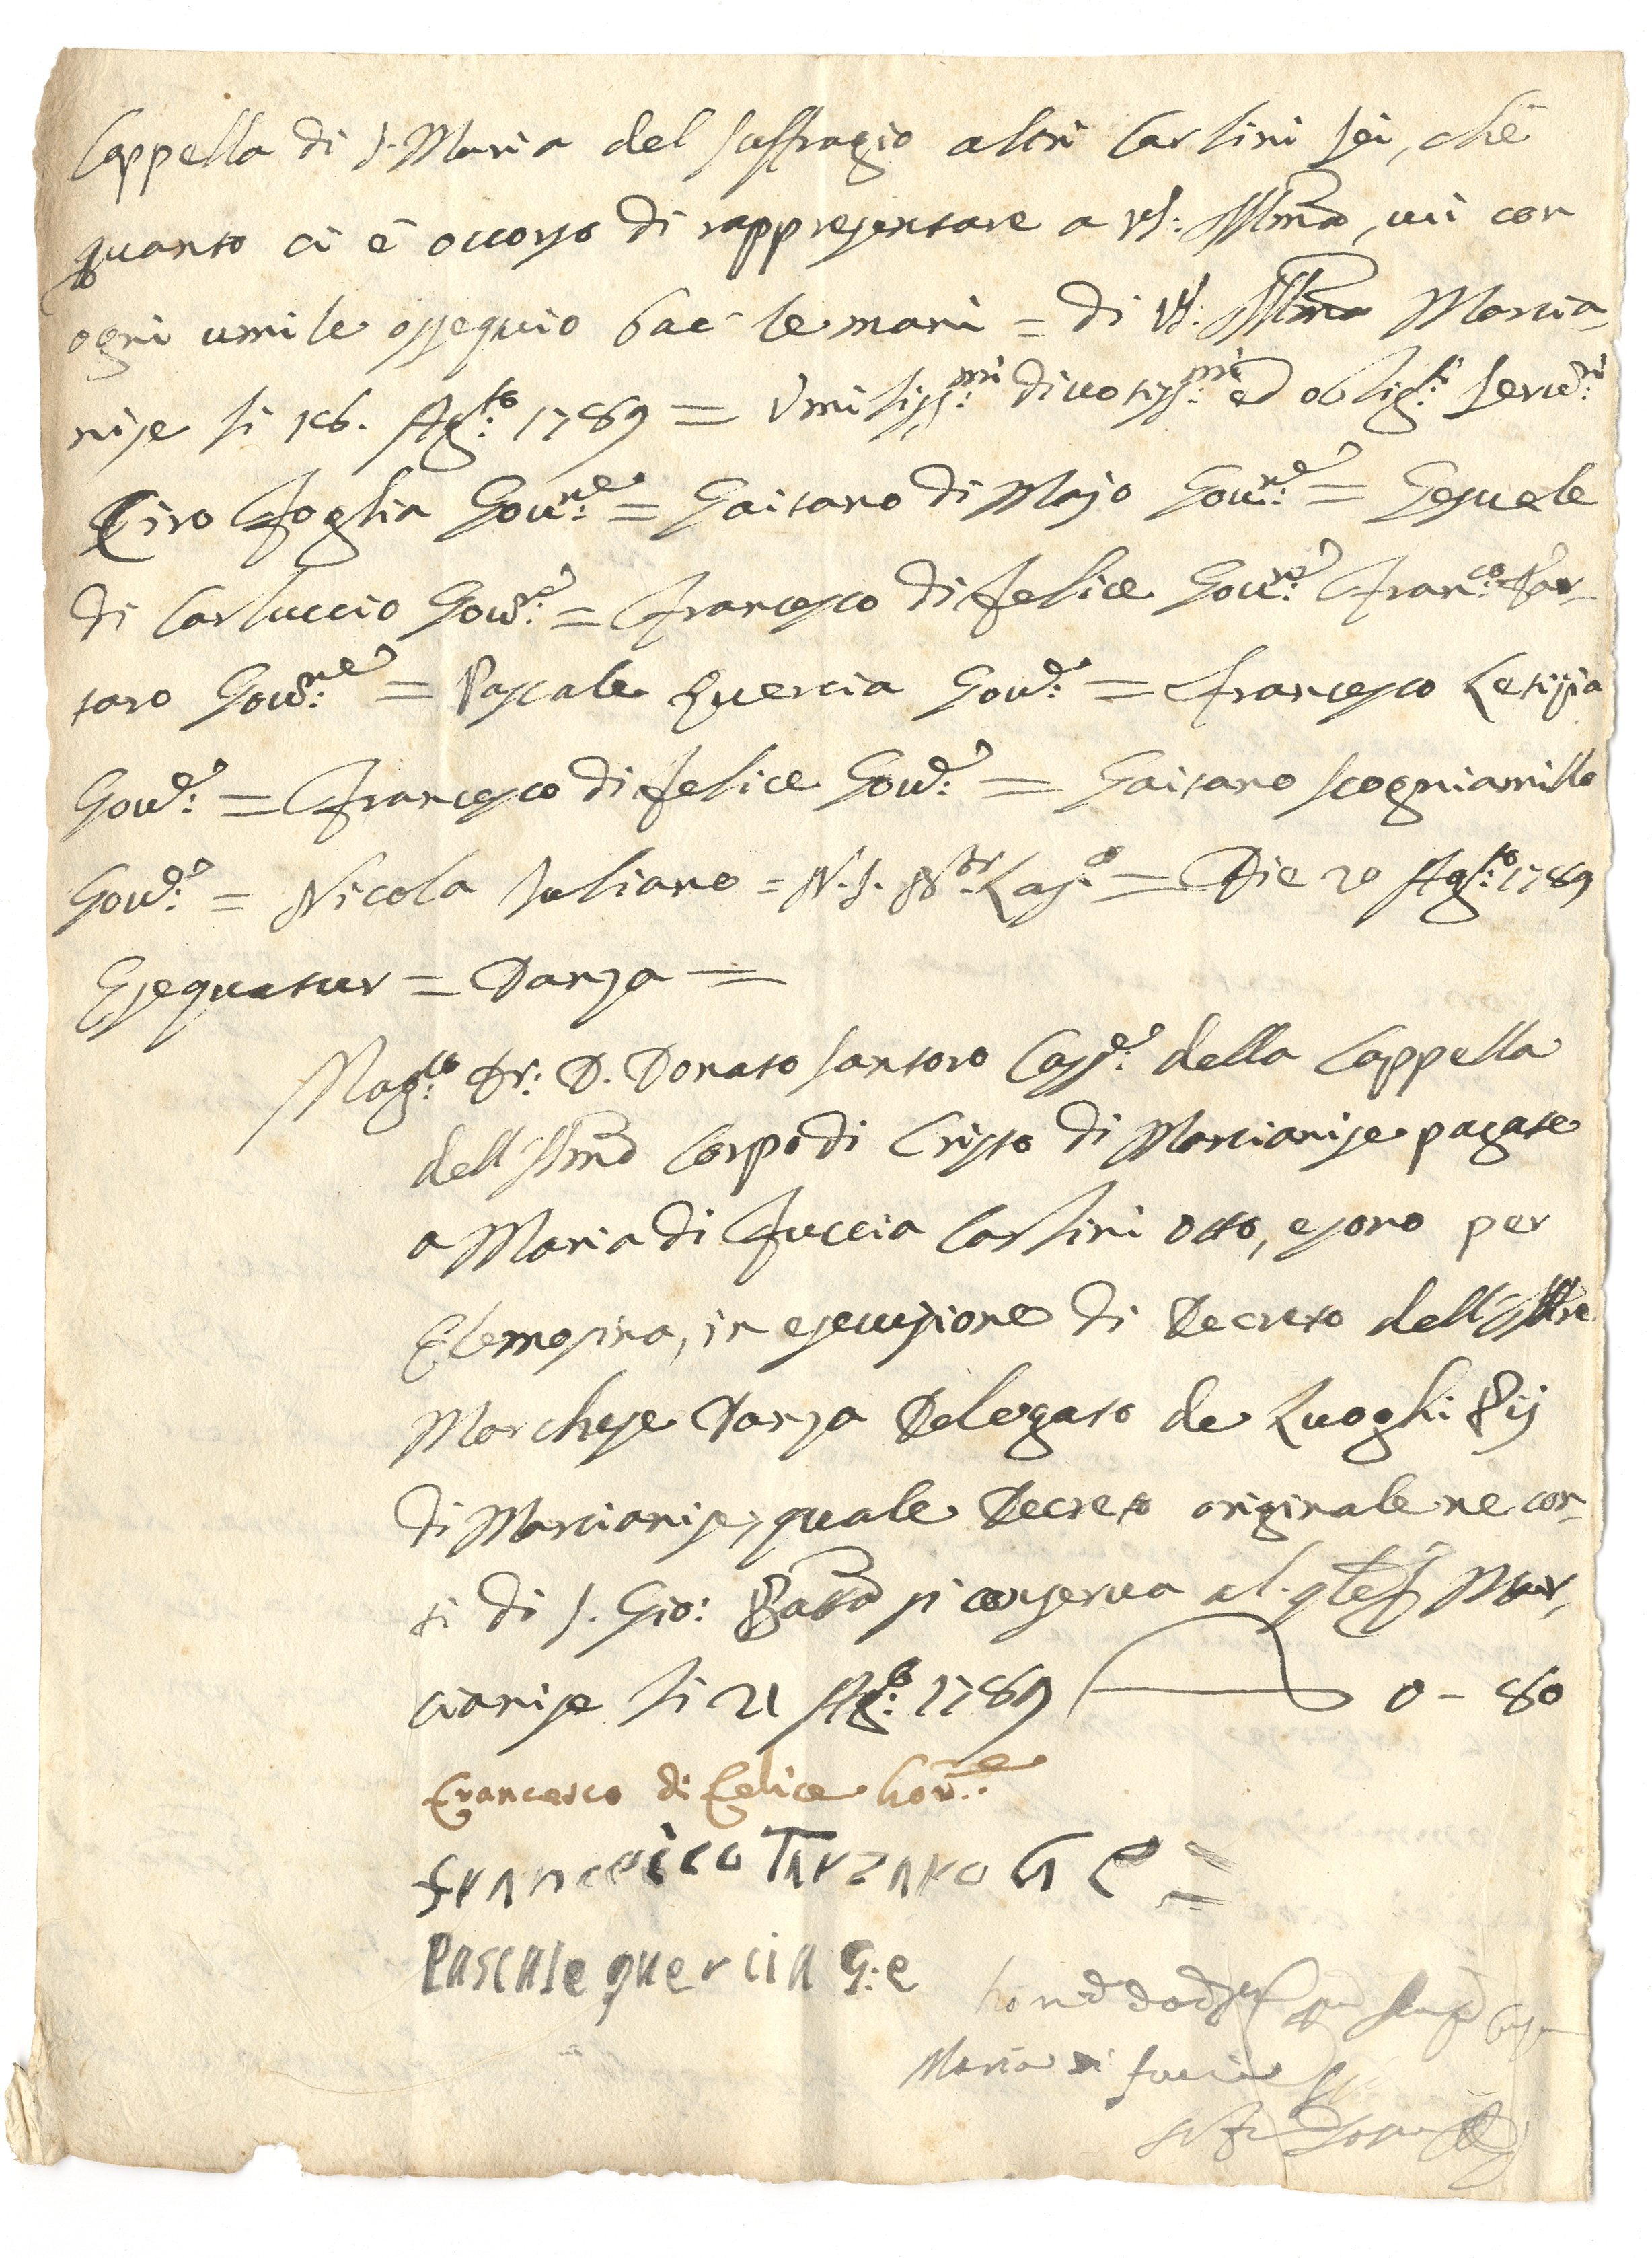 Cappella di S. Maria del Suffragio altri Carlini sei, che
quanto ci è occorso di rappresentare a VS. Illma, cui con
ogni umile ossequio bac.o le mani = di VS. Illma Marcia-
nise li 16. Ag.to 1789 = Umiliss.mi divotiss.mi ed oblig.ti Serv.ri
Ciro Foglia Gov.re = Gaitano di Majo Gov.re = Gesuele
di Carluccio Gov.re = Francesco di Felice Gov.re Fran.co Tar-
taro Gov.re = Pascale Quercia Gov.e = Francesco Letizia
Gov.e = Francesco di Felice Gov.e = Gaitano Scogniamillo
Gov.e = Nicola Juliano = Die 20 Ag.to 1789
Exequatur = Danza =
Mag.co Dr: D. Donato Santoro Cass.e della Cappella
dell SSmo Corpo di Cristo di Marcianise pagate
a Maria di Fuccia Carlini otto, e sono per
Elemosina, in esecuzione di Decreto dell'Illre
Marchese Danza Delegato de Luoghi Pij
di Marcianise, quale Decreto originale ne con-
ti di S. Gio: Batta si conserva Mar-
cianise li 21 Ag.to 1789 0 - 80
Francesco di Felice Gov.e
Francesco Tarzaro G e =
Pascale quercia G:e
Maria di fuccia